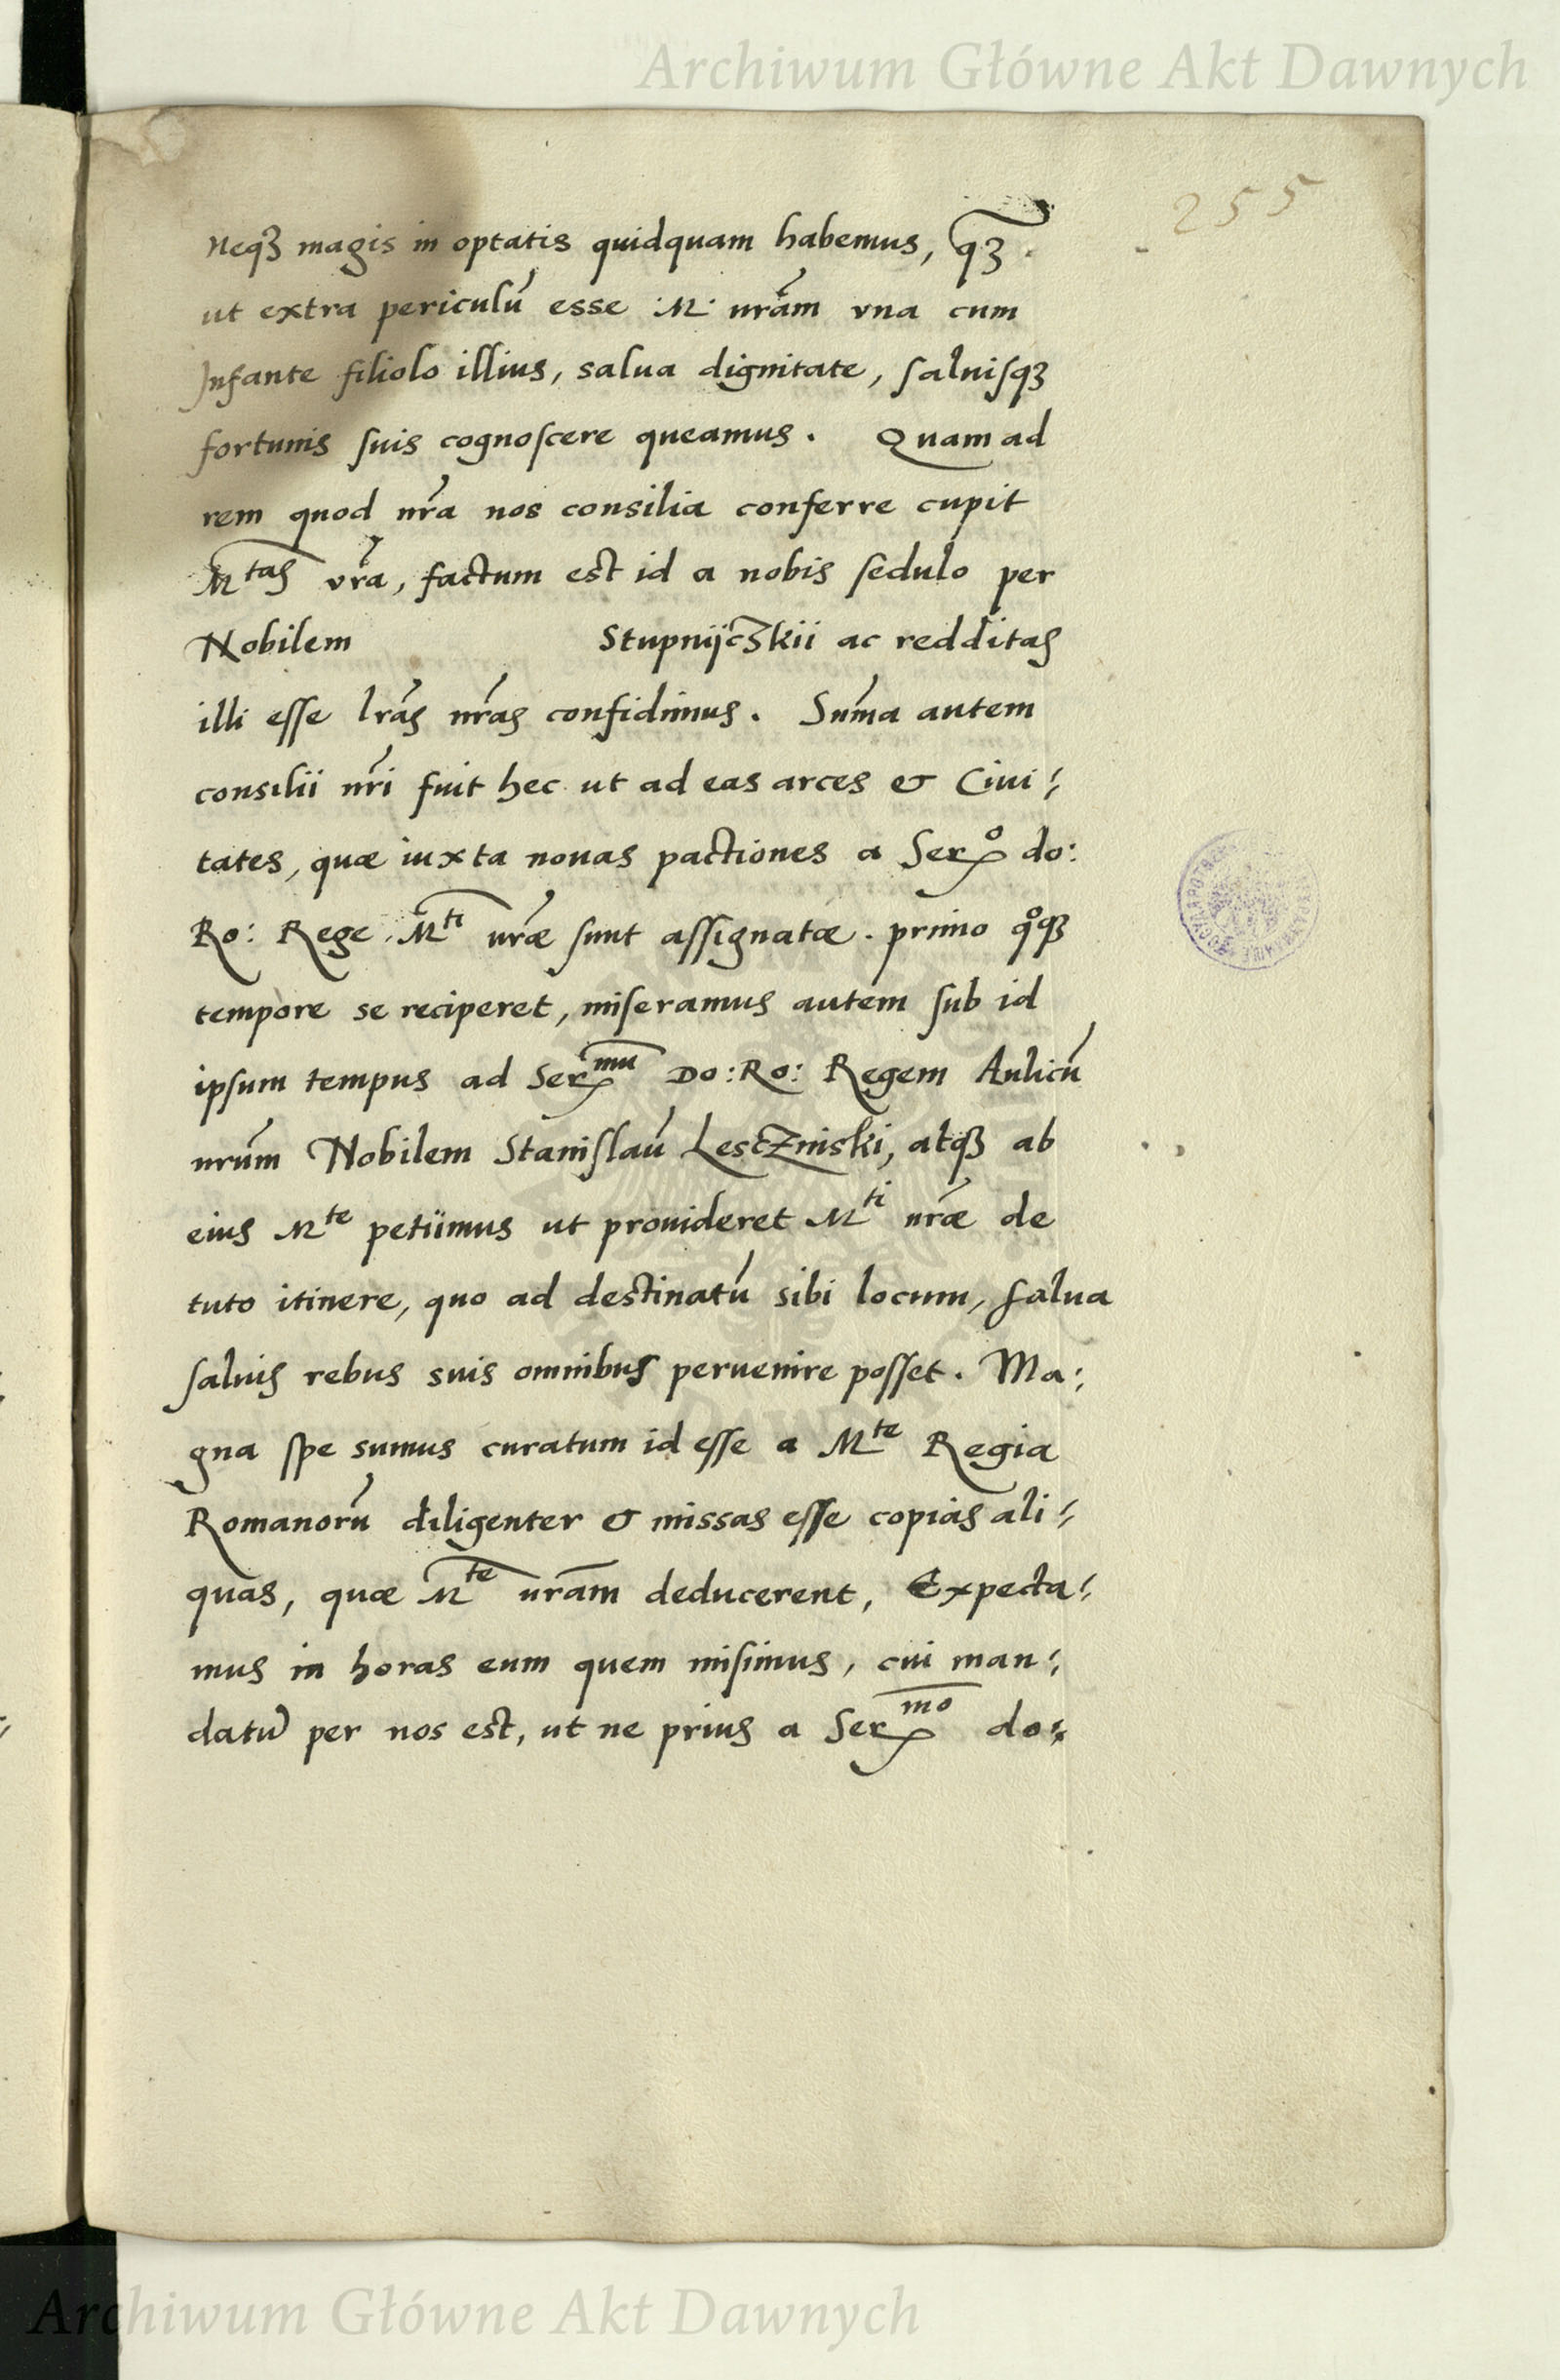 Archiwum Główne Akt Dawnych
255
neqꝫ magis in optatis quidquam habemus, q̃ꝫ
ut extra periculú esse .M. nrám vna cum
Infante filiolo illius, salua dignitate, saluisqꝫ
fortunis suis cognoscere queamus. Quam ad
rem quod nŕa nos consilia conferre cupit
M^tas vŕa, factum est id a nobis sedulo per
Nobilem Stupnijcʒkii ac redditas
illi esse lrás nrás confidimus. Suḿa autem
consilii nŕi fuit hec ut ad eas arces & Ciui⸗
tates, quæ iuxta nouas pactiones a Ser^o do:
Ro: Rege .M^ti vŕæ sunt assignatæ. primo q^oqꝫ
tempore se reciperet, miseramus autem sub id
ipsum tempus ad Ser^mu Do: Ro: Regem Aulicú
nrúm Nobilem Stanislaú Lesczniski, atqꝫ ab
eius M^te petiimus ut prouideret M^ti vŕæ de
tuto itinere, quo ad destinatú sibi locum, salua
saluis rebus suis omnibus peruenire posset. Ma:
gna spe sumus curatum id esse a M^te Regia
Romanorú diligenter & missas esse copias ali⸗
quas, quæ M^te vrām deducerent, Expecta⸗
mus in horas eum quem misimus, cui man⸗
datū per nos est, ut ne prius a Ser^mo do⸗
Archiwum Główne Akt Dawnych